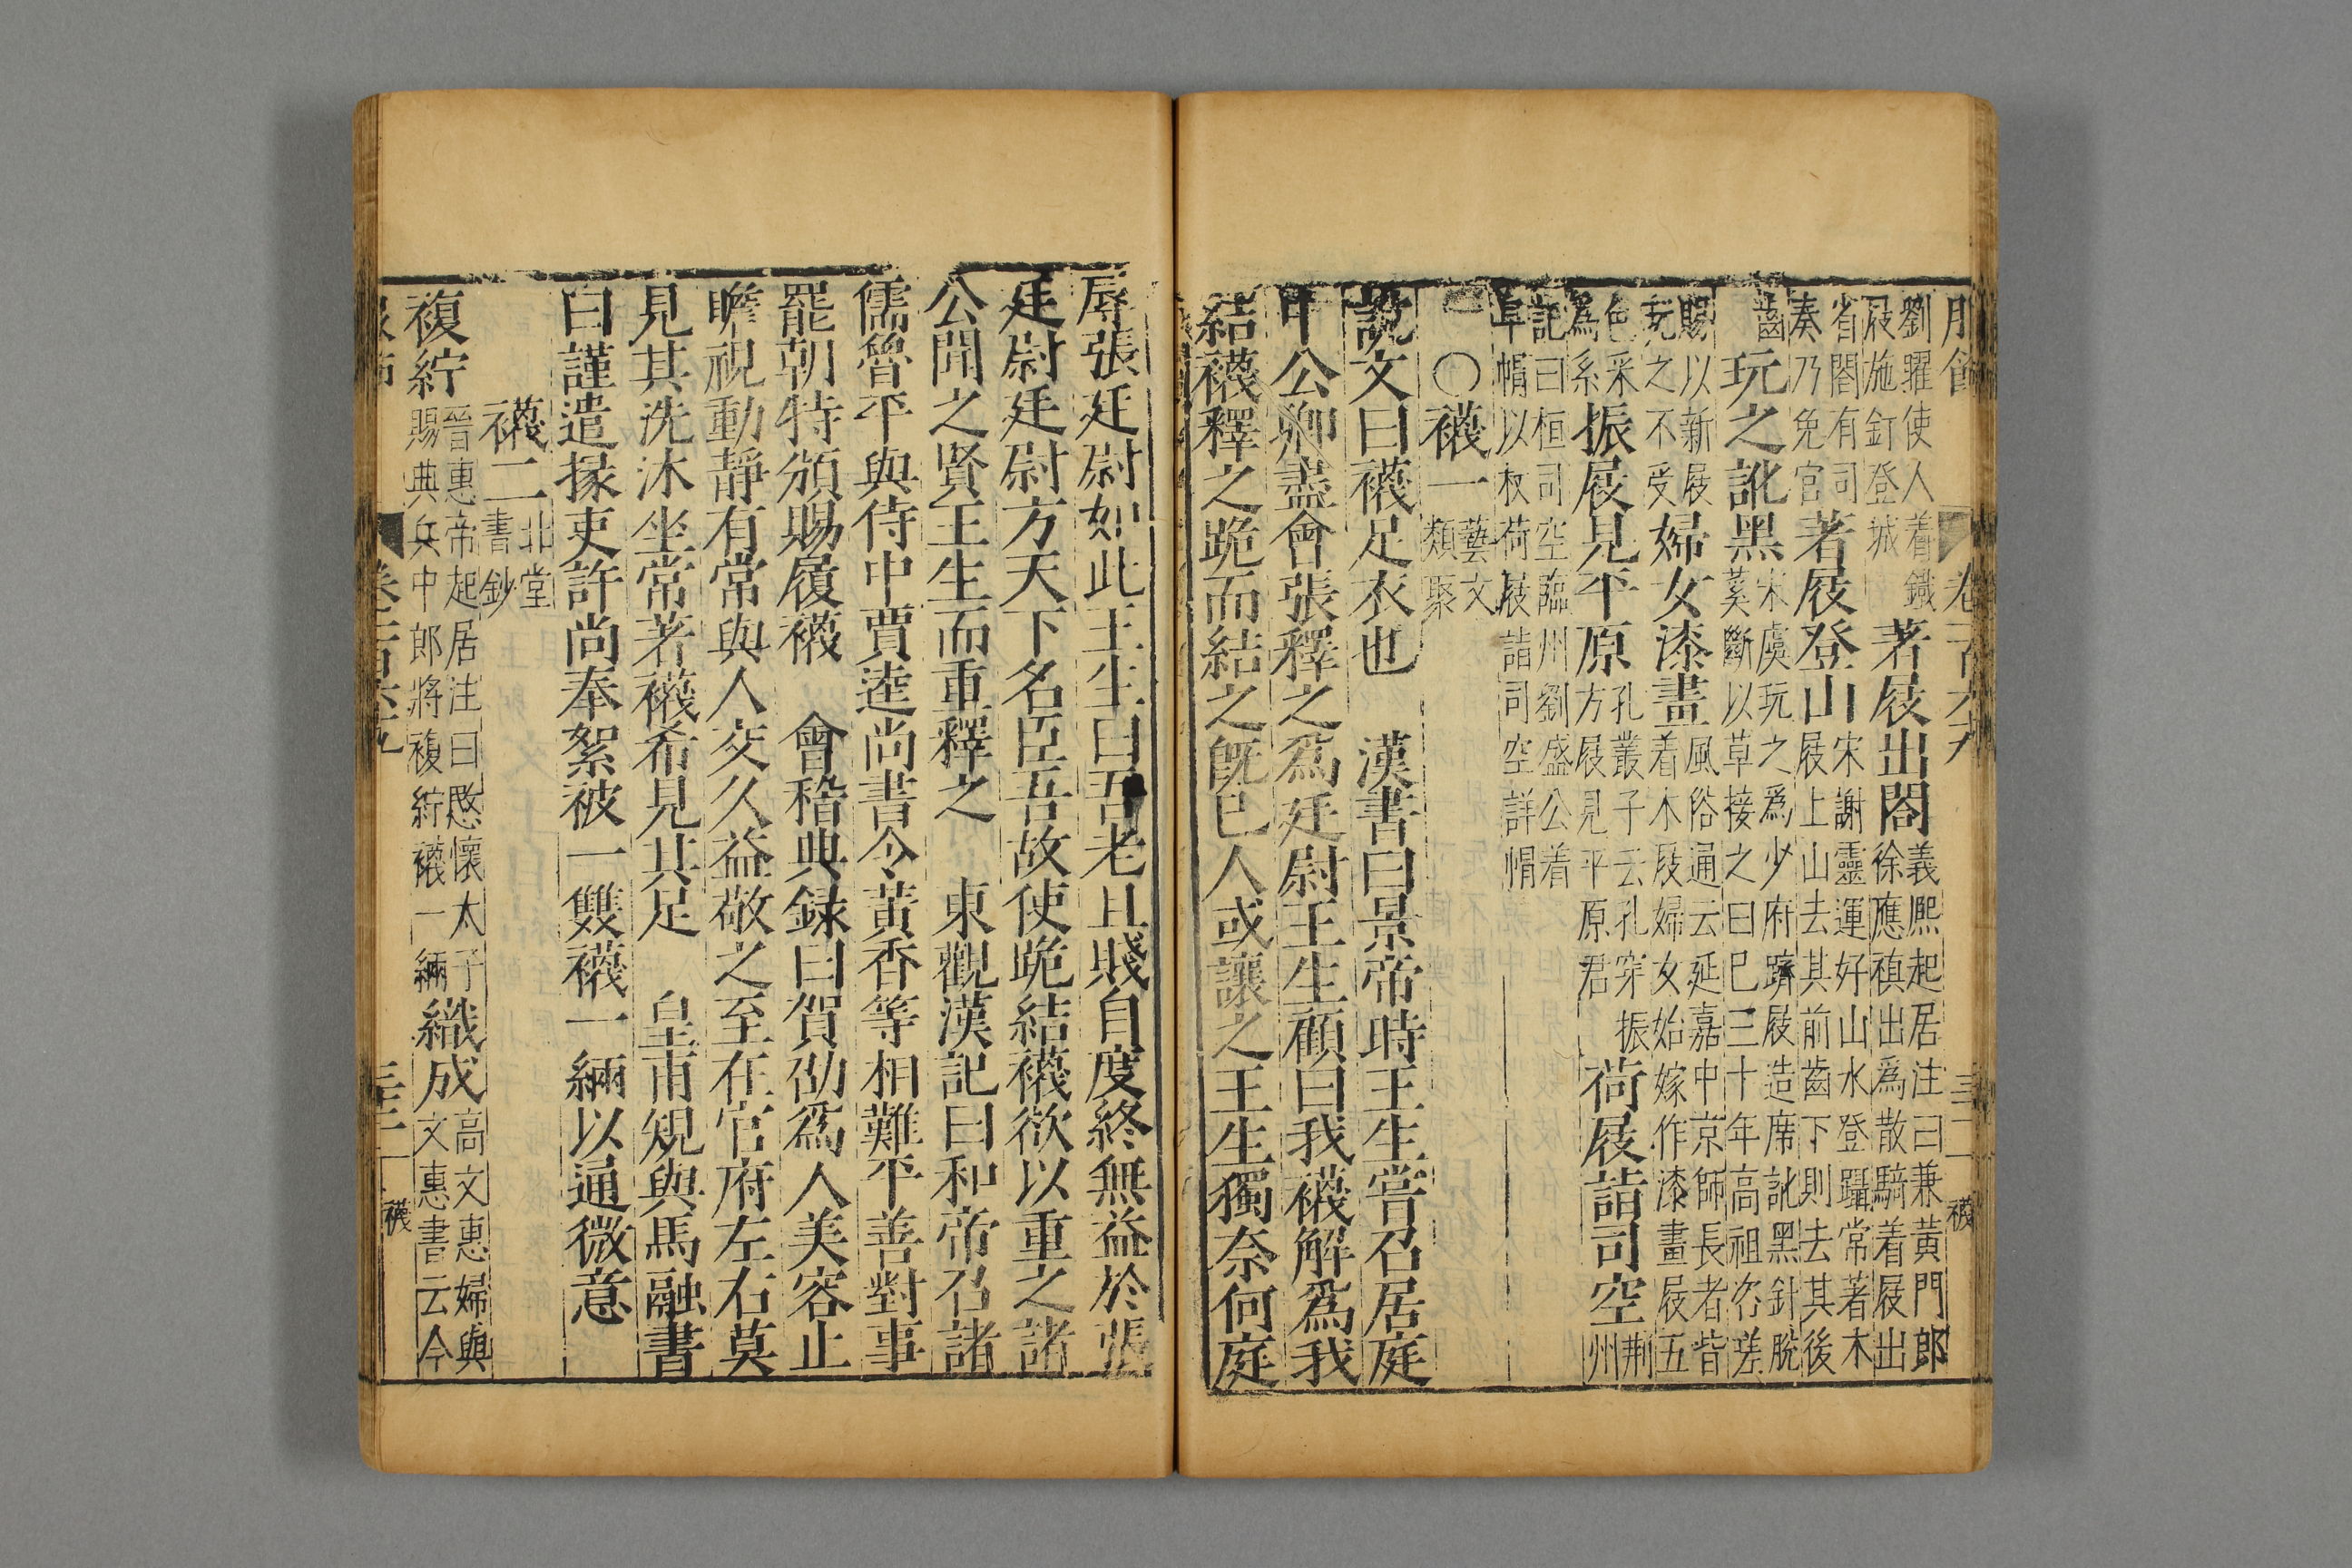 服飾 卷一百六十九 三十二 襪
劉矅使人着鐵屐施釘登城著屐出閤義熈起居注曰兼黃門郎徐應禎出爲散騎着屐出
省閤有司奏乃免官著屐登山宋謝靈運好山水登躡常著木屐上山去其前齒下則去其後
齒玩之訛黑宋虞玩之爲少府躋屐造席訛黑針脫䓾斷以草接之曰巳三十年高祖咨嗟
賜以新屐玩之不受婦女漆畫風俗通云延嘉中京師長者皆着木屐婦女始嫁作漆畫屐五
色采爲系振屐見平原孔叢子云孔穿振方屐見平原君荷屐詣司空荆州
記曰桓司空臨州劉盛公着阜帽以杈荷屐詣司空詳帽
〇襪一藝文類聚
說文曰襪足衣也 漢書曰景帝時王生嘗召居庭
中公卿盡會張釋之爲廷尉王生顧曰我襪解爲我
結襪釋之跪而結之旣巳人或讓之王生獨奈何庭
辱張廷尉如此王生曰吾老且賤自度終無益於張
廷尉廷尉方天下名臣吾故使跪結襪欲以重之諸
公聞之賢王生而重釋之 東觀漢記曰和帝召諸
儒魯平與侍中賈逵尚書令黃香等相難平善對事
罷朝特頒賜履襪 會稽典錄曰賀劭爲人美容止
瞻視動靜有常與人交久益敬之至在官府左右莫
見其洗沐坐常著襪希見其足 皇甫規與馬融書
曰謹遣掾吏許尚奉絮被一雙襪一緉以通微意
襪二北堂書鈔
複紵晉惠帝起居注曰愍懷太子賜典兵中郎將複紵襪一緉織成高文惠婦與文惠書云今
服飾 卷一百六十九 三十二 襪